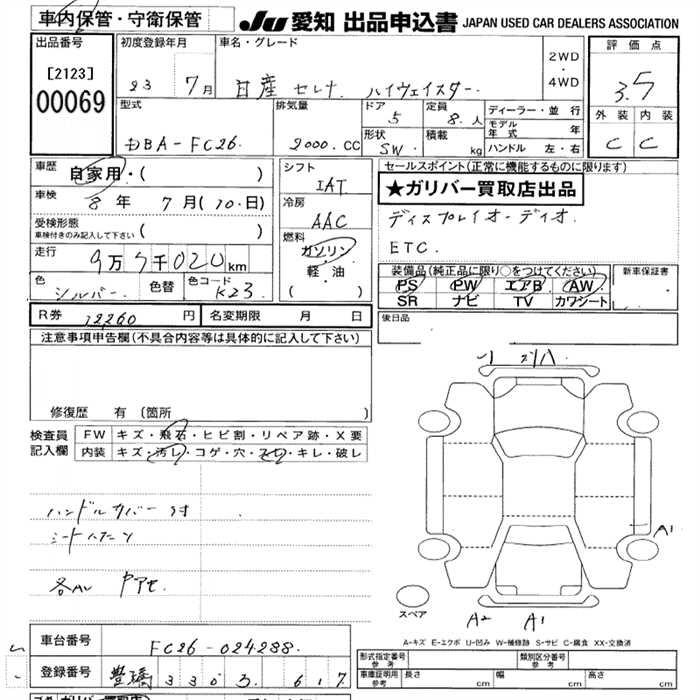 車内保管・守衛保管
JU 愛知 出品申込書 JAPAN USED CAR DEALERS ASSOCIATION
出品番号
[2123]
00069
初度登録年月 車名・グレード
23 7月 日産 セレナ ハイウェイスター
2WD
・
4WD
評価点
3.5
外装 内装
C C
型式 排気量 ドア 定員
DBA-FC26. 2000.CC 5 8.人
形状 積載
SW. kg
ディーラー・並 行
モデル年式 年
ハンドル 左・右
車歴 自家用・( )
車検 8年 7月(10.日)
受検形態
車検付きのみ記入して下さい ( )
走行 9万5千020km
色 シルバー 色替 色コード K23
シフト
IAT
冷房
AAC
燃料
ガソリン
・
軽・油
( )
セールスポイント(正常に機能するものに限ります)
★ガリバー買取店出品
ディスプレイオーディオ.
ETC.
装備品(純正品に限り○をつけてください)
PS PW エアB AW
SR ナビ TV カワシート
新車保証書
R券 12260 円 名変期限 月 日
後日品
注意事項申告欄(不具合内容等は具体的に記入して下さい)
修復歴 有 (箇所 )
検査員記入欄
FW キズ・飛石・ヒビ割・リペア跡・X要
内装 キズ・汚レ・コゲ・穴・スレ・キレ・破レ
ハンドルカバー付
A1
スペア
A2 A1
A-キズ E-エクボ U-凹み W-補修跡 S-サビ C-腐食 XX-交換済
車台番号 FC26-024288.
登録番号 3303. 617
形式指定番号 参考 類別区分番号 参考
車庫証明用 参考 長さ cm 幅 cm 高さ cm